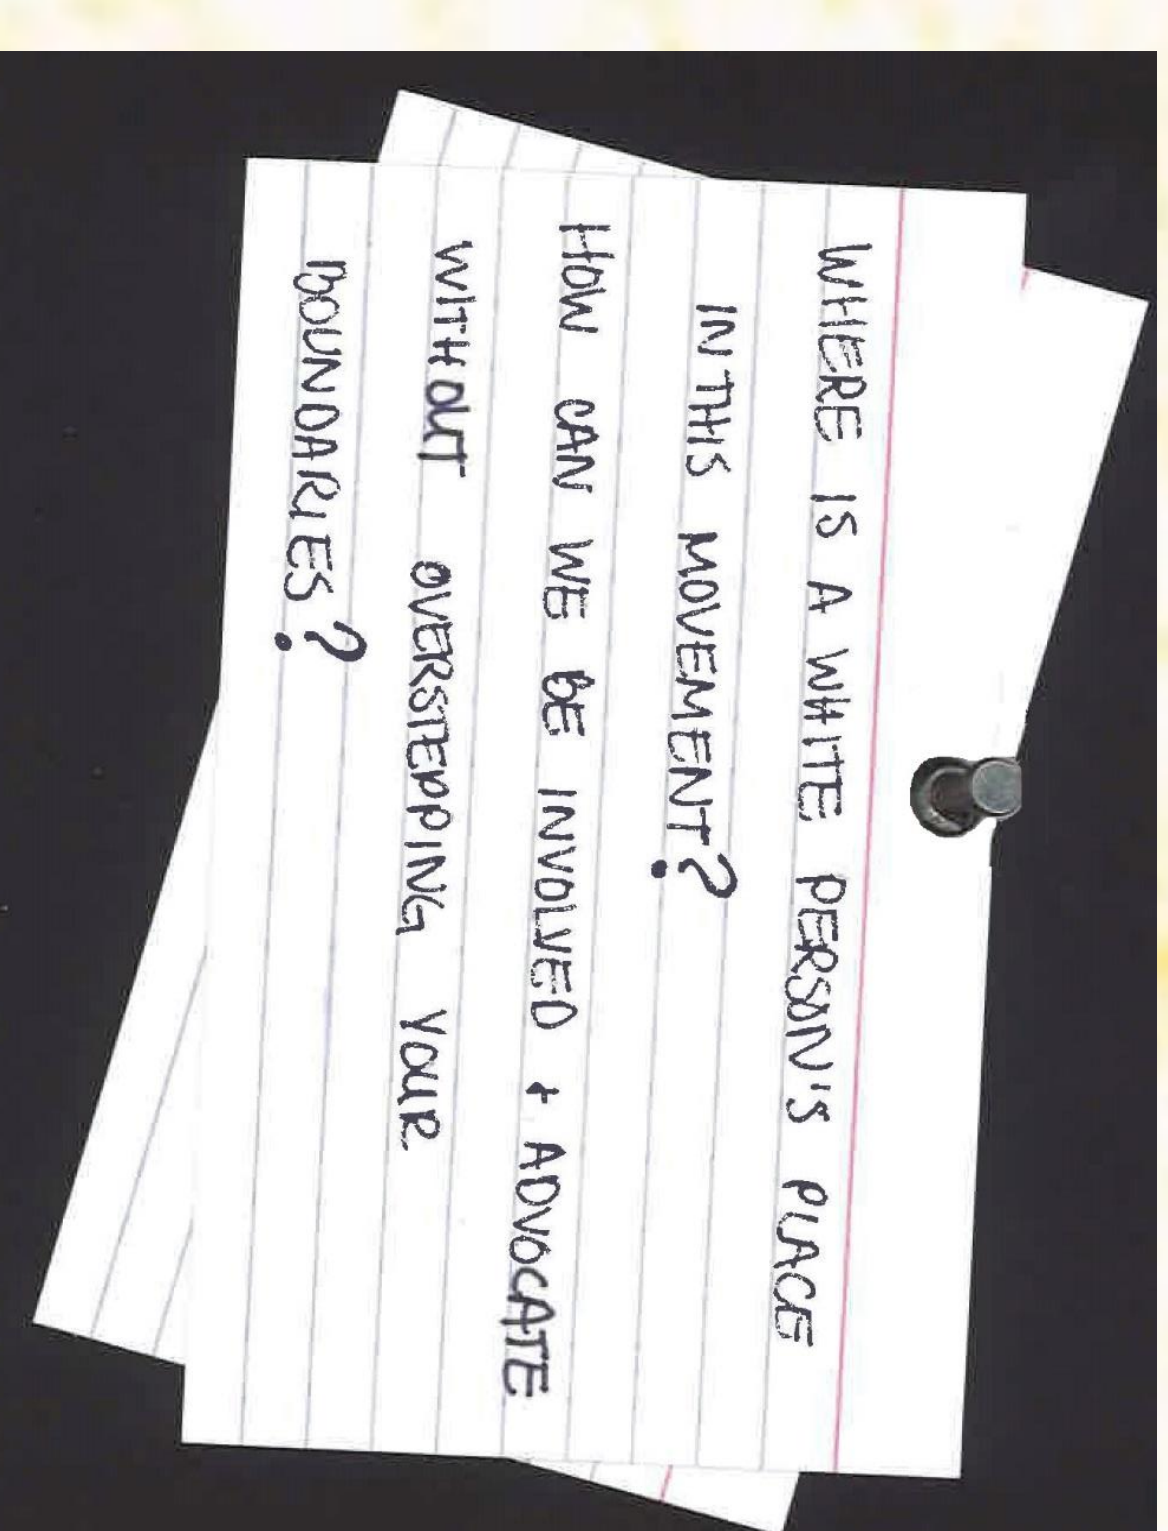 WHERE IS A WHITE PERSON'S PLACE
IN THIS MOVEMENT?
HOW CAN WE BE INVOLVED + ADVOCATE
WITHOUT OVERSTEPPING YOUR
BOUNDARIES?